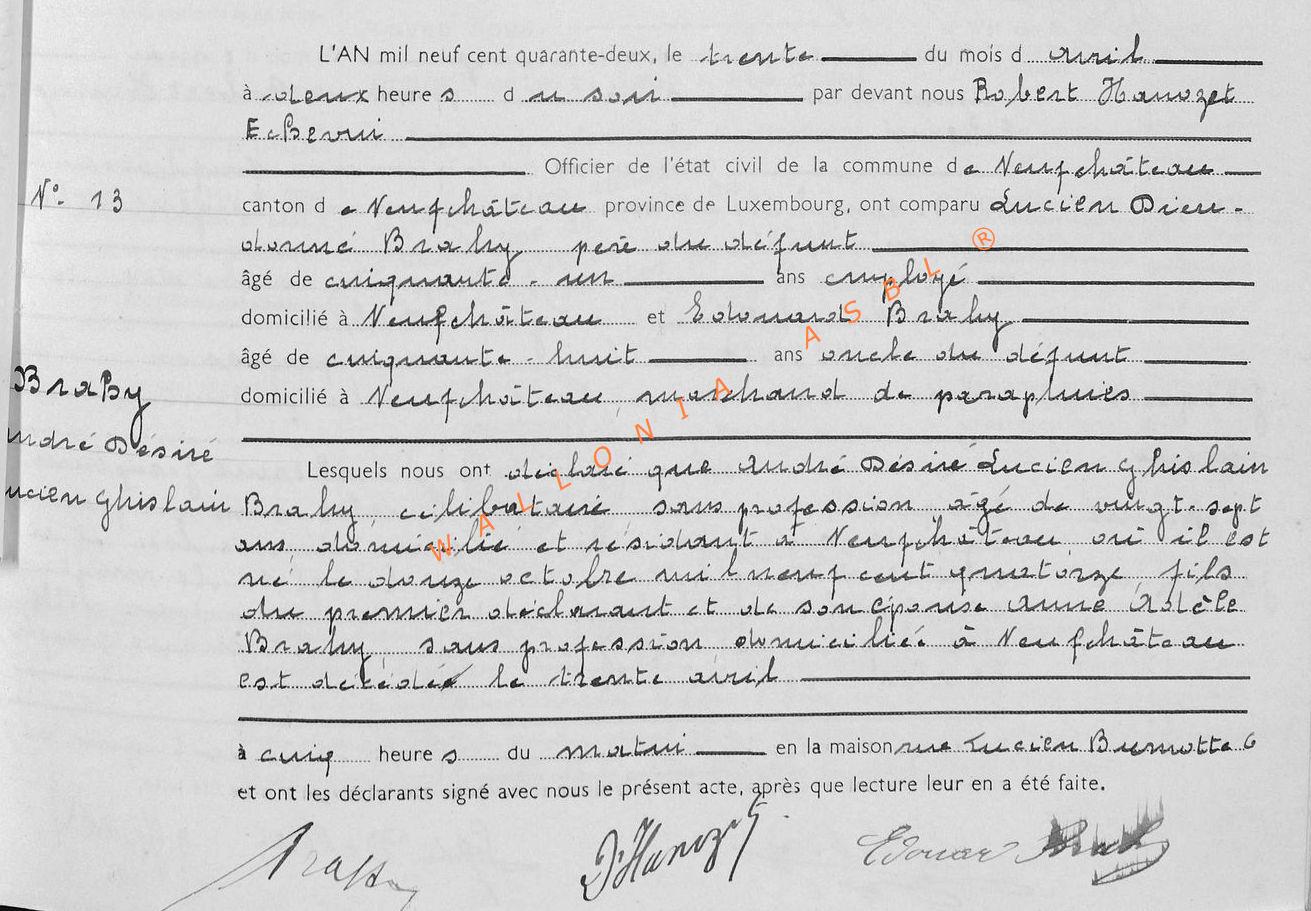 L'AN mil neuf cent quarante-deux, le trente du mois d avril
à deux heures du soir par devant nous Robert Hanozet
Echevin
Officier de l'état civil de la commune de Neufchâteau
N° 13
canton de Neufchâteau province de Luxembourg, ont comparu Lucien Dieu-
donné Brahy père du défunt
âgé de cinquante-un ans employé
domicilié à Neufchâteau et Edouard Brahy
âgé de cinquante-huit ans oncle du défunt
Brahy
domicilié à Neufchâteau, marchand de parapluies
André Désiré
Lesquels nous ont déclaré que André Désiré Lucien Ghislain
ucien Ghislain
Brahy, célibataire sans profession âgé de vingt-sept
ans, domicilié et résidant à Neufchâteau, où il est
né le douze octobre mil neuf cent quatorze, fils
du premier déclarant et de son épouse Anne Adèle
Brahy, sans profession domiciliée à Neufchâteau
est décédé le trente avril
à cinq heures du matin en la maison rue Lucien Burnotte 6
et ont les déclarants signé avec nous le présent acte, après que lecture leur en a été faite.
Brahy
Hanozet
Edouard Brahy
WALLONIA ASBL ®